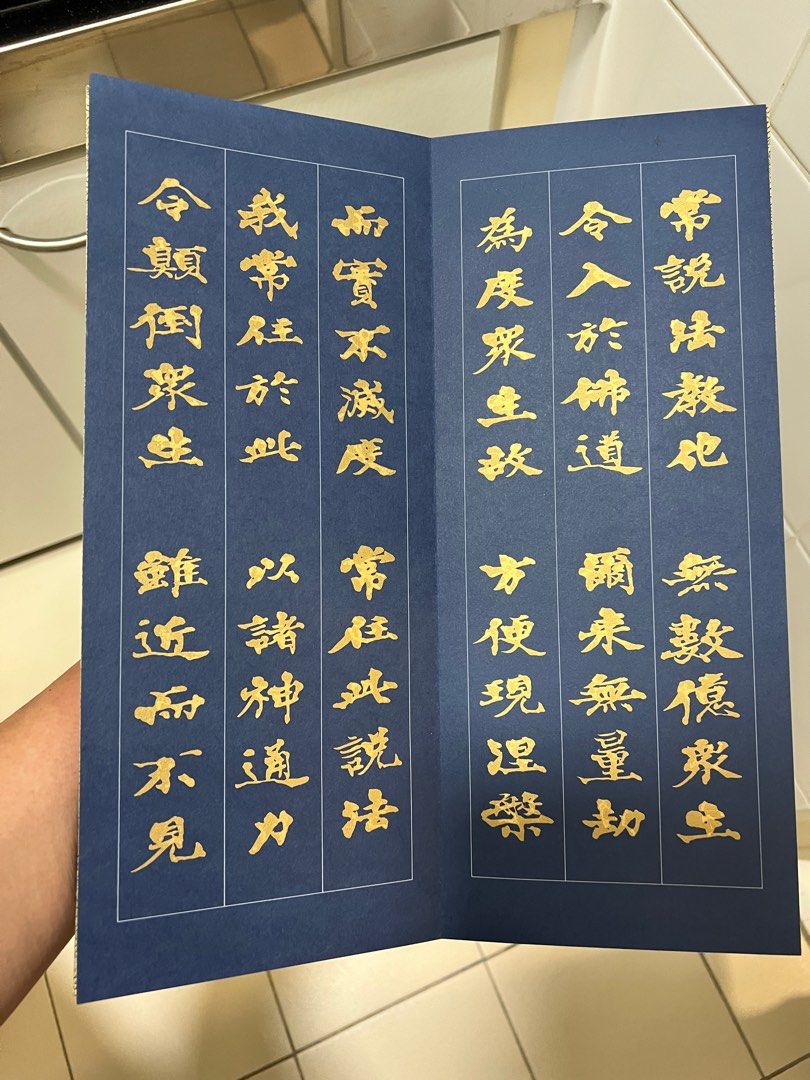 常說法教化 無數億衆生
令入於佛道 爾来無量劫
為度衆生故 方便現涅槃
而實不滅度 常住此説法
我常住於此 以諸神通力
令顛倒衆生 雖近而不見